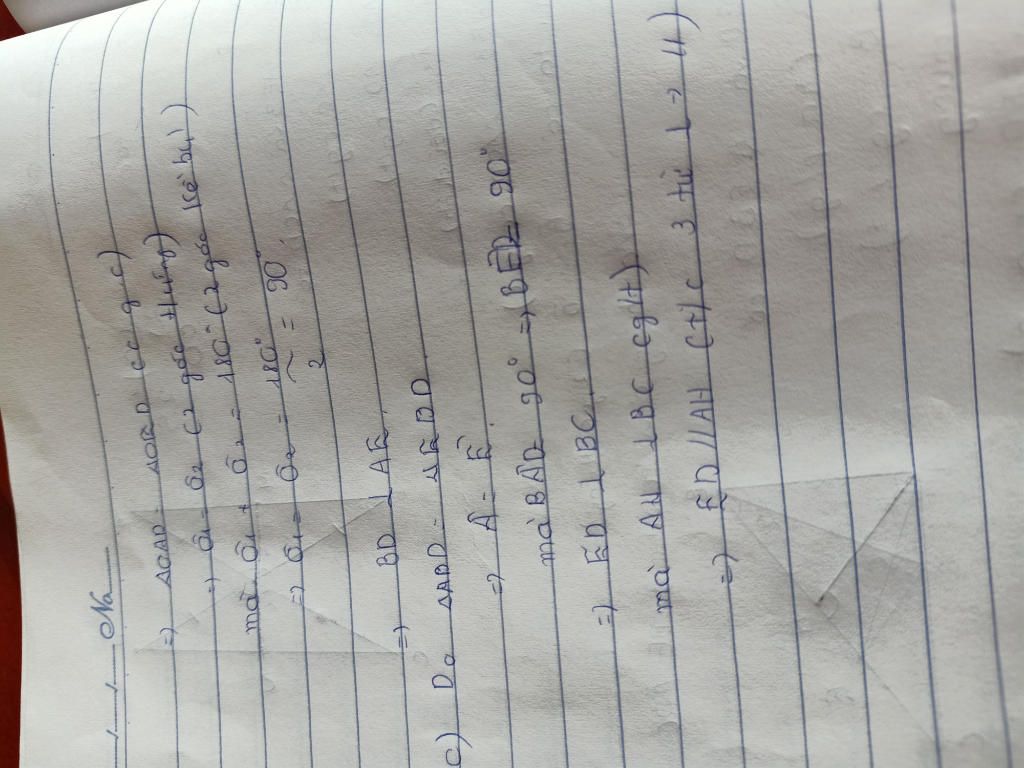 No
=> ΔOAD = ΔOED (c g c)
=> Ô₁ = Ô₂ (2 góc tường)
mà Ô₁ + Ô₂ = 180° (2 góc kề bù)
=> Ô₁ = Ô₂ = 180°/2 = 90°
=> BD ⊥ AE
c) Do ΔABD = ΔEBD
=> Â = Ê
mà BAD = 90° => BED = 90°
=> ED ⊥ BC
mà AH ⊥ BC (gt)
=> ED // AH (t/c 3 từ ⊥ -> //)